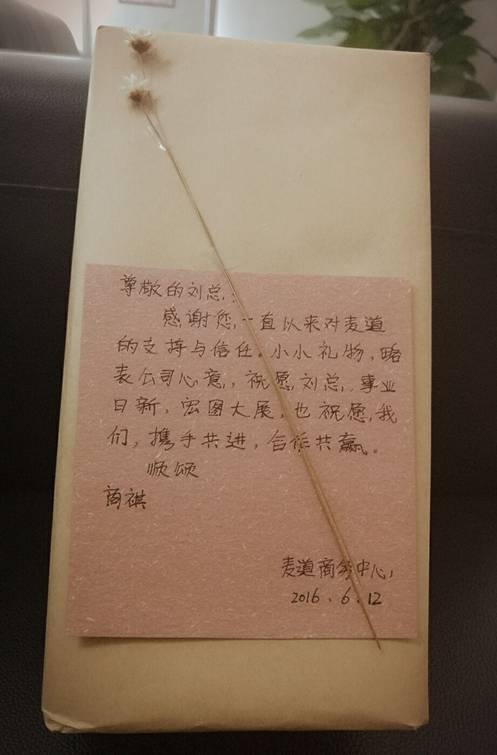 尊敬的刘总：
感谢您，一直以来对麦道
的支持与信任。小小礼物，略
表公司心意，祝愿刘总，事业
日新，宏图大展，也祝愿，我
们，携手共进，合作共赢。
顺颂
商祺
麦道商务中心
2016.6.12